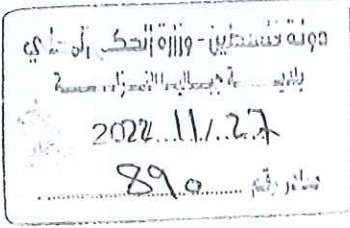 دولة فلسطين - وزارة الحكم المحلي
بلدية
2022/11/27
صادر رقم 890